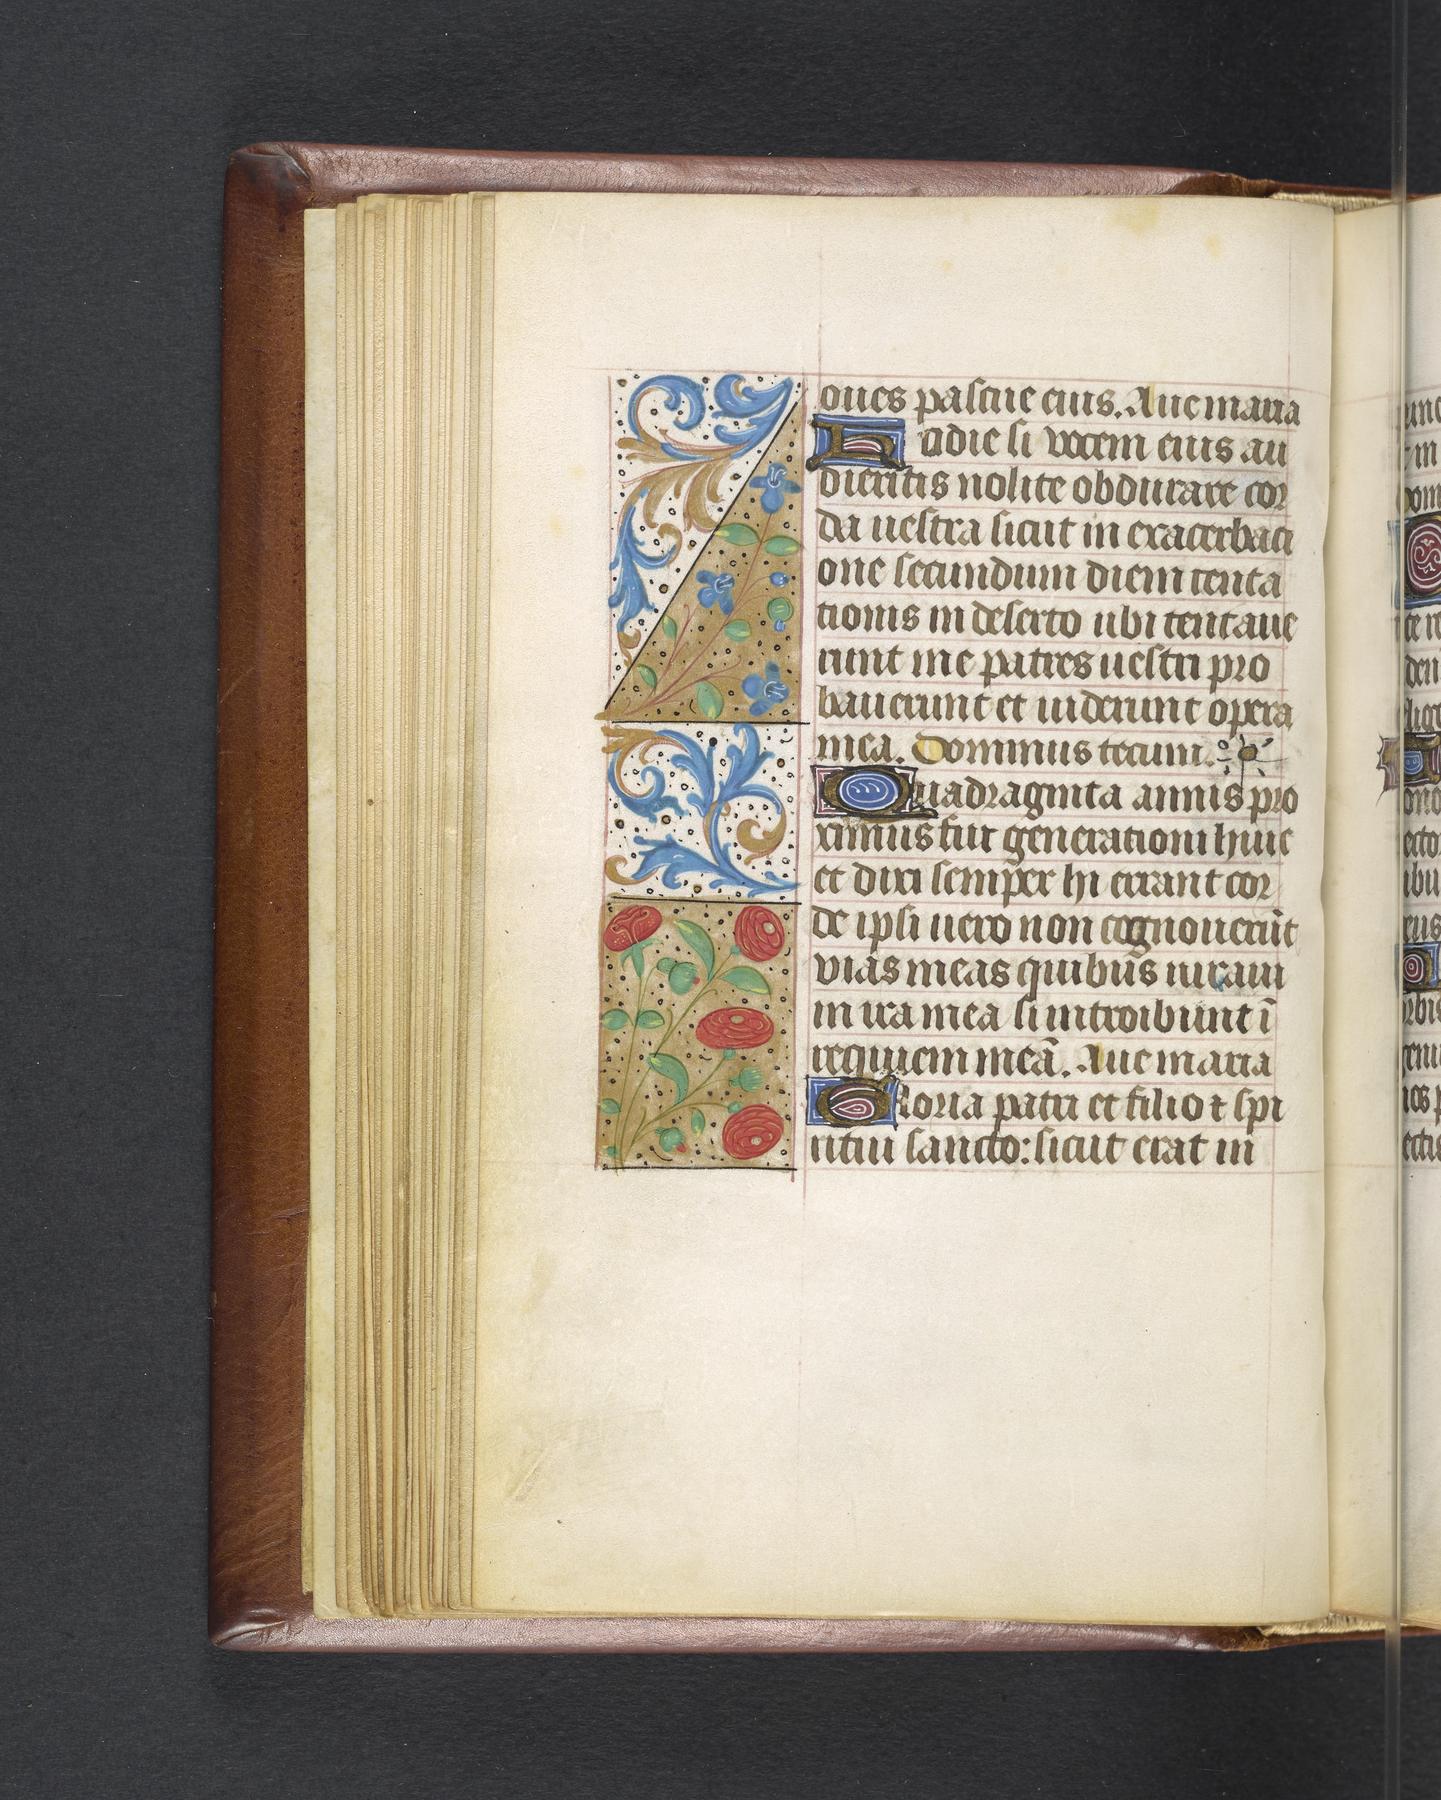 oues pascue eius. Aue maria
Hodie si vocem eius au
dieritis nolite obdurare cor
da uestra sicut in exacerbaci
one secundum diem tenta
tionis in deserto ubi tentaue
runt me patres uestri pro
bauerunt et uiderunt opera
mea. Dominus tecum.
Quadraginta annis pro
ximus fui generationi huic
et dixi semper hi errant cor
de ipsi uero non cognouerūt
vias meas quibus iuraui
in ira mea si introibunt ī
requiem meā. Aue maria
Gloria patri et filio ⁊ spi
ritui sancto: sicut erat in